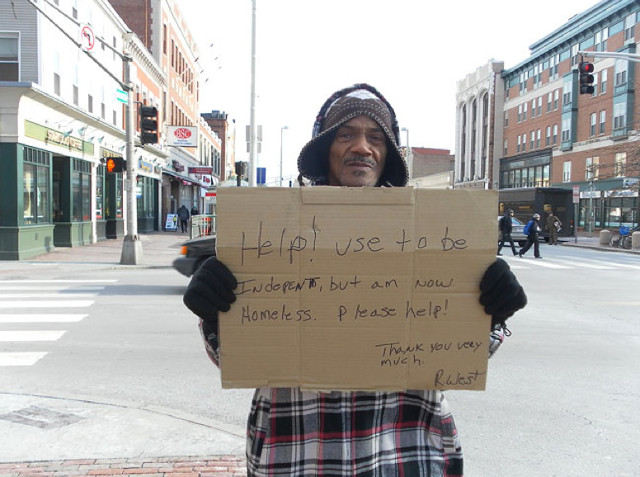 Help! use to be
Indepent, but am now
Homeless. Please help!
Thank you very
much.
R West